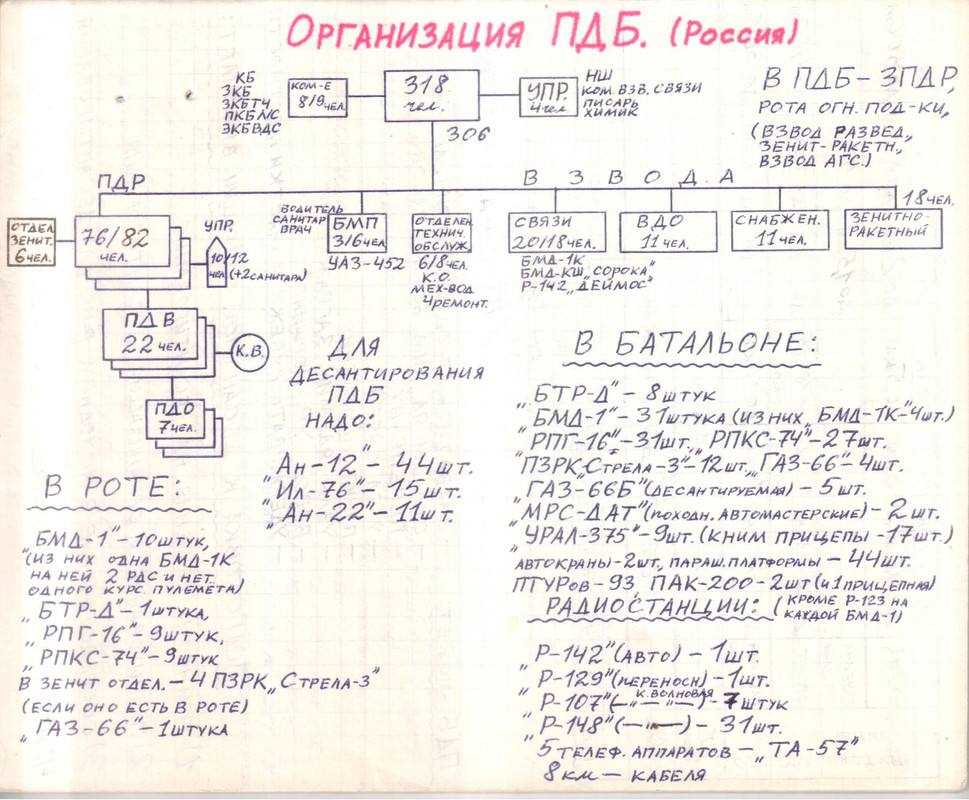 Организация ПДБ. (Россия)
КБ
ЗКБ
ЗКБТЧ
ПКБЛ/С
ЗКБВДС
КОМ-Е
8/9 ЧЕЛ.
318
ЧЕЛ.
306
УПР.
4 ЧЕЛ
НШ
КОМ. ВЗВ. СВЯЗИ
ПИСАРЬ
ХИМИК
В ПДБ – 3ПДР,
РОТА ОГН. ПОД-КИ,
(ВЗВОД РАЗВЕД.,
ЗЕНИТ-РАКЕТН.,
ВЗВОД АГС.)
ПДР
ВЗВОДА
18 ЧЕЛ.
ОТДЕЛ
ЗЕНИТ.
6 ЧЕЛ.
76/82
ЧЕЛ.
УПР.
10/12
ЧЕЛ
(+2 САНИТАРА)
ВОДИТЕЛЬ
САНИТАР
ВРАЧ
БМП
3/6 ЧЕЛ
УАЗ-452
ОТДЕЛЕН.
ТЕХНИЧ.
ОБСЛУЖ.
6/8 ЧЕЛ.
К.О.
МЕХ-ВОД
4 РЕМОНТ.
СВЯЗИ
20/18 ЧЕЛ.
БМД-1К
БМД-КШ „СОРОКА"
Р-142 „ДЕЙМОС"
ВДО
11 ЧЕЛ.
СНАБЖЕН.
11 ЧЕЛ.
ЗЕНИТНО-
РАКЕТНЫЙ
ПДВ
22 ЧЕЛ.
К.В.
ПДО
7 ЧЕЛ.
ДЛЯ
ДЕСАНТИРОВАНИЯ
ПДБ
НАДО:
„Ан-12" – 44 шт.
„Ил-76" – 15 шт.
„Ан-22" – 11 шт.
В РОТЕ:
„БМД-1" – 10 ШТУК,
(ИЗ НИХ ОДНА БМД-1К
НА НЕЙ 2 РДС И НЕТ
ОДНОГО КУРС. ПУЛЕМЁТА)
„БТР-Д" – 1 ШТУКА,
„РПГ-16" – 9 ШТУК,
„РПКС-74" – 9 ШТУК
В ЗЕНИТ ОТДЕЛ. – 4 ПЗРК „СТРЕЛА-3"
(ЕСЛИ ОНО ЕСТЬ В РОТЕ)
„ГАЗ-66" – 1 ШТУКА
В БАТАЛЬОНЕ:
„БТР-Д" – 8 ШТУК
„БМД-1" – 31 ШТУКА (ИЗ НИХ „БМД-1К" – 4 ШТ.)
„РПГ-16" – 31 ШТ., „РПКС-74" – 27 ШТ.
ПЗРК „СТРЕЛА-3" – 12 ШТ., „ГАЗ-66" – 4 ШТ.
„ГАЗ-66Б" (ДЕСАНТИРУЕМАЯ) – 5 ШТ.
„МРС-ДАТ" (ПОХОДН. АВТОМАСТЕРСКИЕ) – 2 ШТ.
„УРАЛ-375" – 9 ШТ. (К НИМ ПРИЦЕПЫ – 17 ШТ.)
АВТОКРАНЫ – 2 ШТ., ПАРАШ. ПЛАТФОРМЫ – 44 ШТ.
ПТУРОВ – 93, ПАК-200 – 2 ШТ (И 1 ПРИЦЕПНАЯ)
РАДИОСТАНЦИИ: (КРОМЕ Р-123 НА
КАЖДОЙ БМД-1)
„Р-142" (АВТО) – 1 ШТ.
„Р-129" (ПЕРЕНОСН) – 1 ШТ.
К. ВОЛНОВАЯ
„Р-107" (–"– –"–) – 7 ШТУК
„Р-148" (–"–) – 31 ШТ.
5 ТЕЛЕФ. АППАРАТОВ – „ТА-57"
8 КМ – КАБЕЛЯ